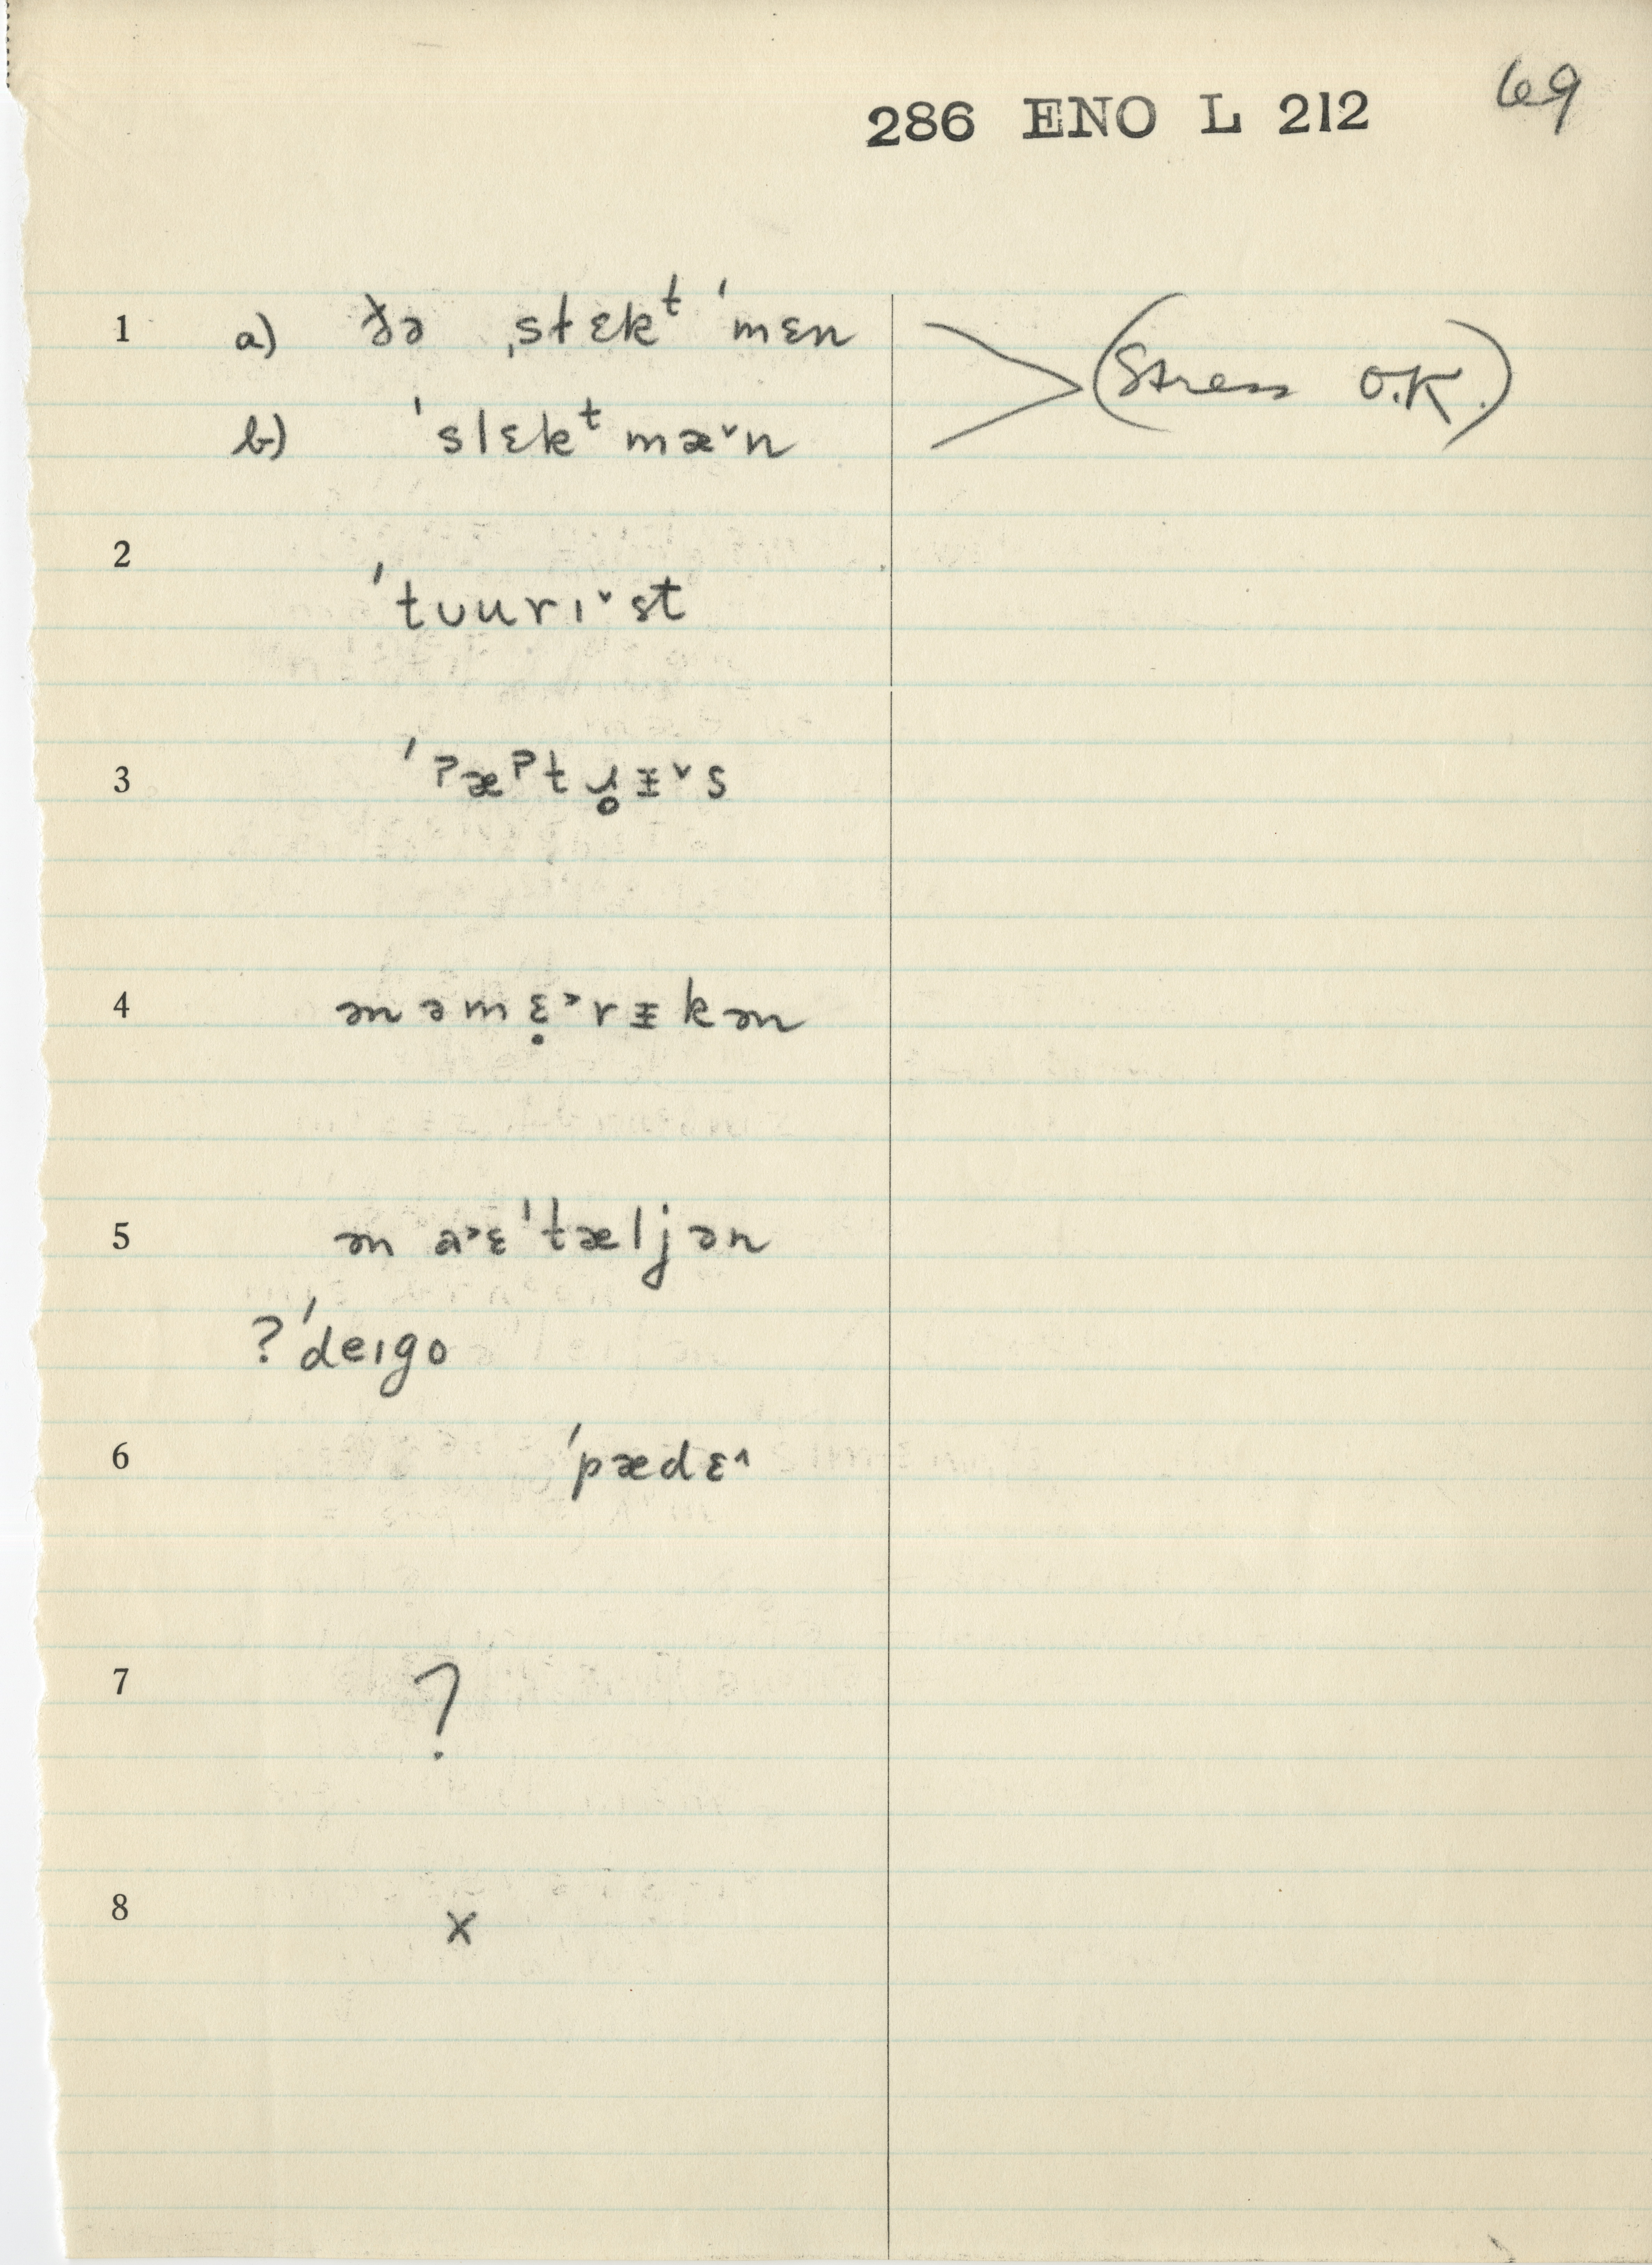 286 ENO L 212 69
1 a) ðə ˌsɫɛkᵗ ˈmɛn (Stress O.K.)
b) ˈslɛkᵗmæ˅n
2
ˈtʊurɪ˅st
3 ˈʔæʔtɹ̥ᵻ˅s
4 ən əmɛ̣˃rᵻkən
5 ən a˃ɛˈtæljən
? ˈdeɪgo
6 ˈpædɛ˄
7 ?
8 x